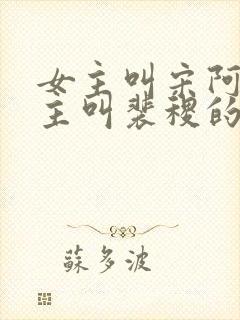 女主叫宋阿
主叫裴稷的
蘇多波